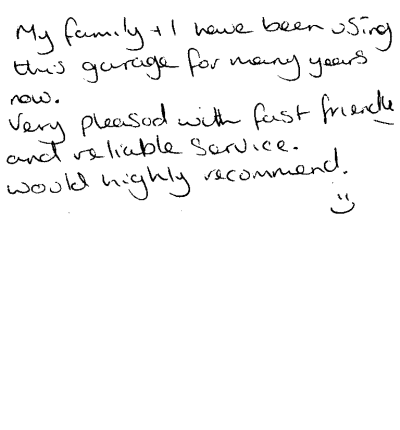 My family + I have been using
this garage for many years
now.
Very pleased with fast friendly
and reliable service.
would highly recommend.